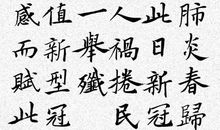 肺炎春歸
此日新冠
人禍捲民
一舉殲
值新型冠
感而賦此